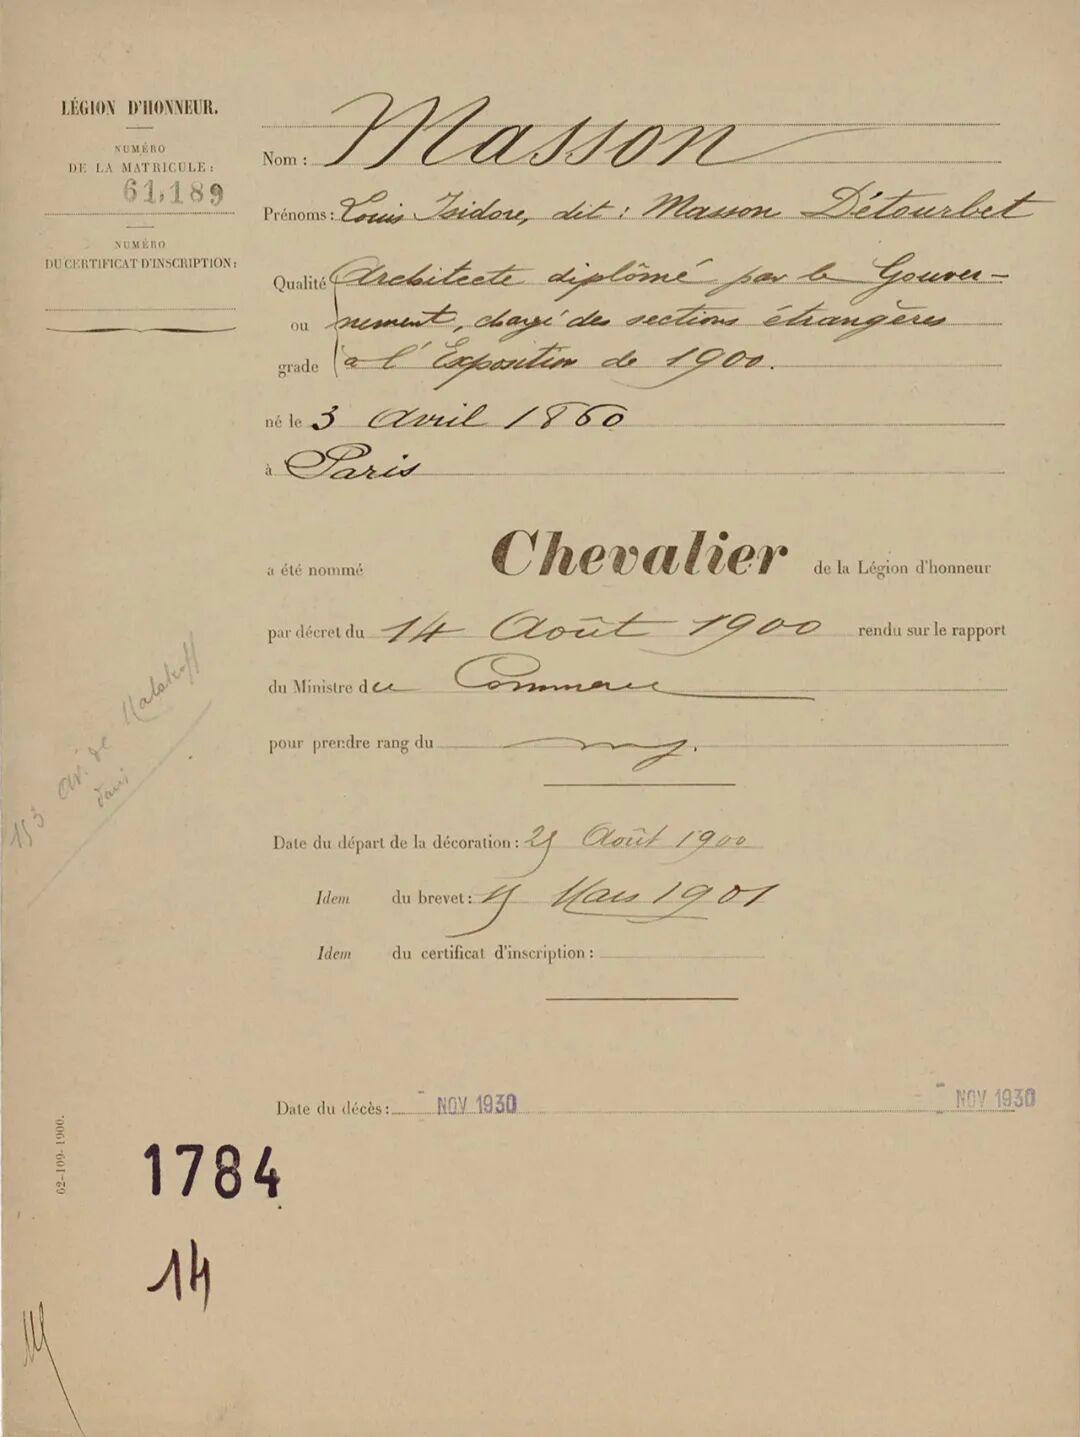 LÉGION D'HONNEUR.
NUMÉRO
DE LA MATRICULE :
61,189
NUMÉRO
DU CERTIFICAT D'INSCRIPTION :
Nom : Masson
Prénoms : Louis Isidore, dit : Masson Détourbet
Qualité Architecte diplômé par le Gouver-
ou nement, chargé des sections étrangères
grade à l'Exposition de 1900.
né le 3 Avril 1860
à Paris
a été nommé Chevalier de la Légion d'honneur
par décret du 14 Août 1900 rendu sur le rapport
du Ministre du Commerce
pour prendre rang du
153 av. de Malakoff
Paris
Date du départ de la décoration : 25 Août 1900
Idem du brevet : Mars 1901
Idem du certificat d'inscription :
Date du décès : - NOV 1930 - NOV 1930
62-109-1900.
1784
14